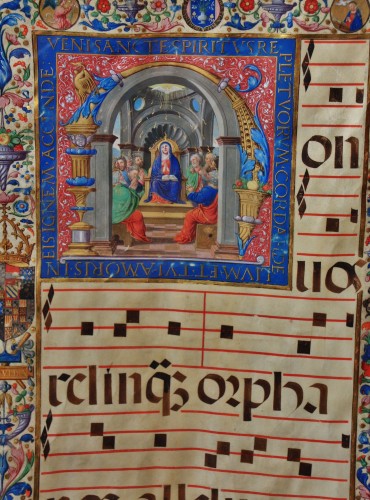 VENI SANCTE SPIRITVS RE
PLETVORVM CORDA FIDE
LIVM ET TVI AMORIS IN
EIS IGNEM ACCENDE
on
uos
relinq̃з orpha
nos